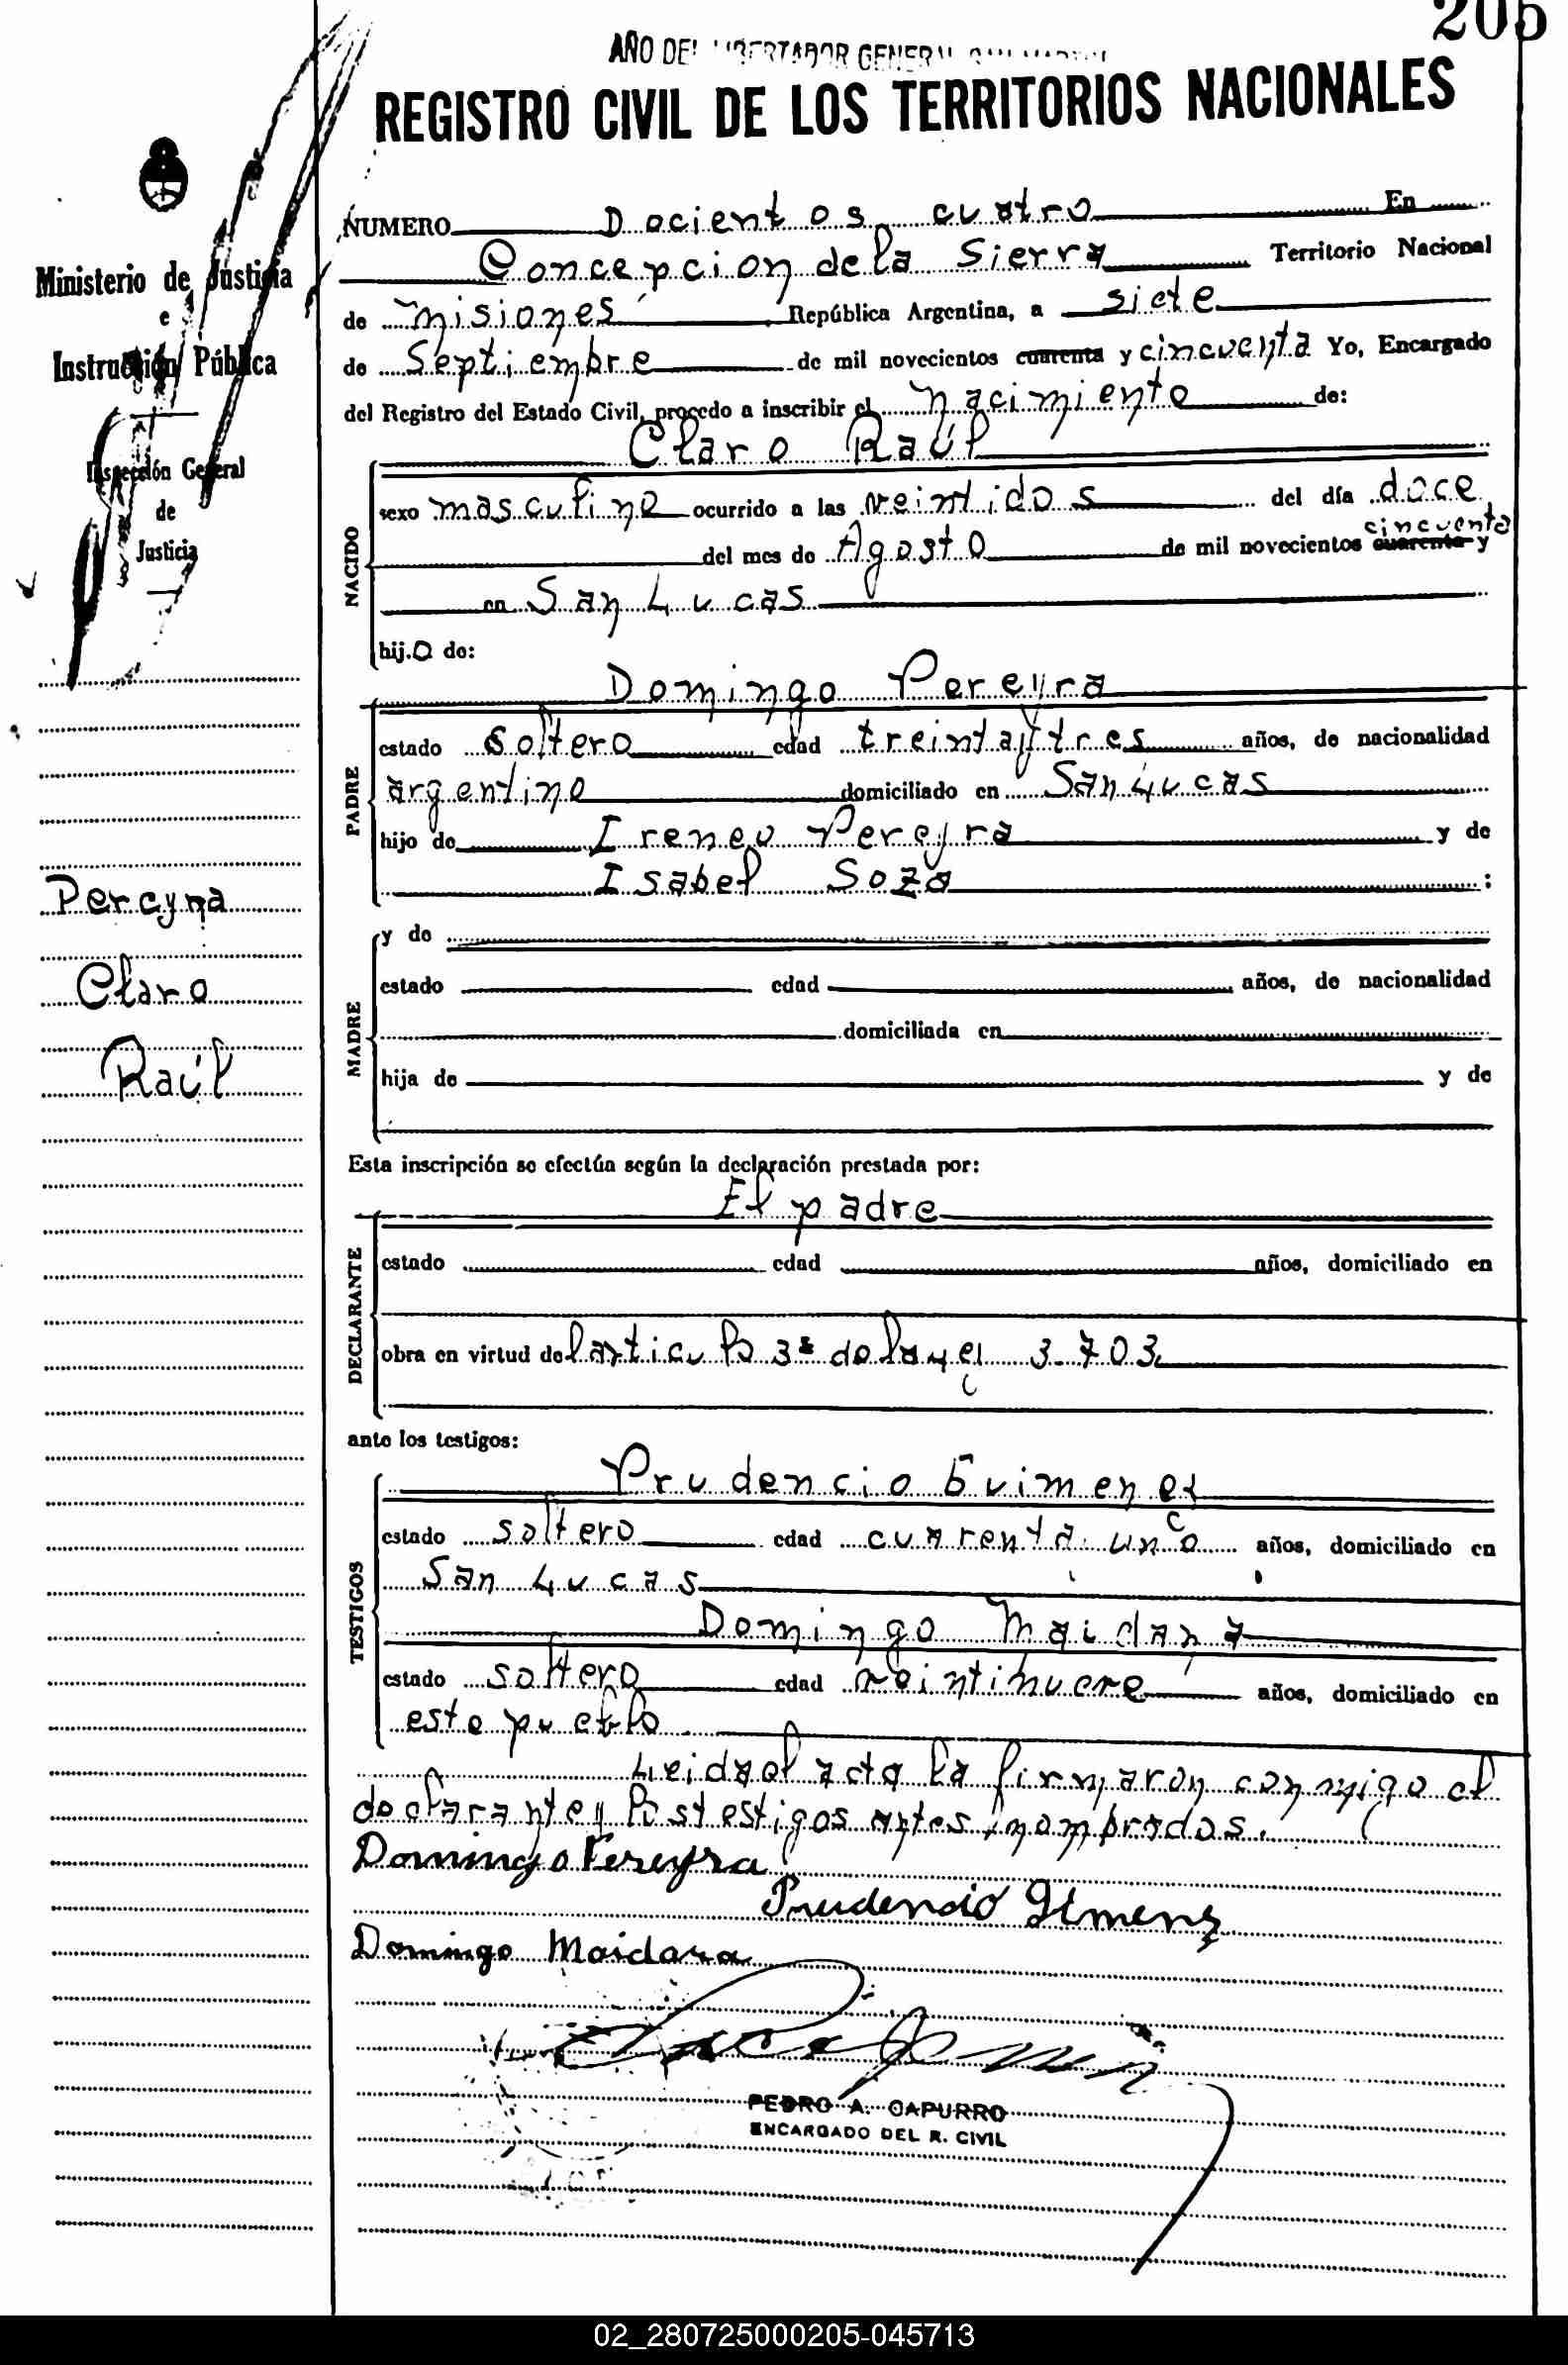 205
AÑO DEL LIBERTADOR GENERAL SAN MARTIN
REGISTRO CIVIL DE LOS TERRITORIOS NACIONALES
Ministerio de Justicia
e
Instrucción Pública
Inspección General
de
Justicia
Pereyra
Claro
Raúl
NUMERO Docientos cuatro En
Concepcion de la Sierra Territorio Nacional
de misiones República Argentina, a siete
de Septiembre de mil novecientos cuarenta y cincuenta Yo, Encargado
del Registro del Estado Civil, procedo a inscribir el nacimiento de:
Claro Raúl
NACIDO
sexo masculino ocurrido a las veintidos del día doce
cincuenta
del mes de Agosto de mil novecientos cuarenta y
en San Lucas
hijo de:
Domingo Pereyra
PADRE
estado soltero edad treinta y tres años, de nacionalidad
argentino domiciliado en San Lucas
hijo de Ireneu Pereyra y de
Isabel Soza :
MADRE
y de
estado edad años, de nacionalidad
domiciliada en
hija de y de
Esta inscripción se efectúa según la declaración prestada por:
El padre
DECLARANTE
estado edad años, domiciliado en
obra en virtud del articulo 3º de la ley 3.703
ante los testigos:
TESTIGOS
Prudencio
estado soltero edad cuarenta uno años, domiciliado en
San Lucas
Domingo Maidana
estado soltero edad veintinueve años, domiciliado en
este pueblo
Leida el acta la firmaron conmigo el
declarante y los testigos antes nombrados.
Domingo Pereyra
Prudencio Gimenz
Domingo Maidana
PEDRO A. CAPURRO
ENCARGADO DEL R. CIVIL
02_280725000205-045713